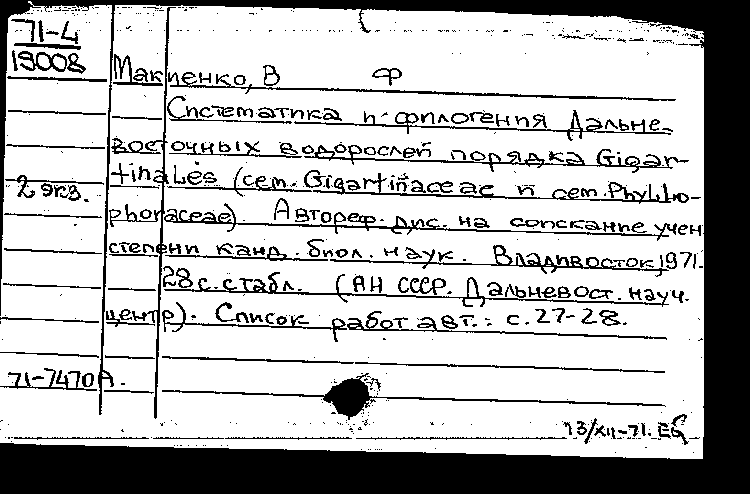 71-4
19008
Макиенко, В Ф
Систематика и филогения Дальне-
восточных водорослей порядка Gigar-
tinales (сем. Gigartinaceae и сем. Phyllo-
2 экз.
phoraceae). Автореф. дис. на соискание учен
степени канд. биол. наук. Владивосток, 1971.
28 с. с табл. (АН СССР. Дальневост. науч.
центр). Список работ авт.: с. 27-28.
71-7470А.
13/XII-71. EG